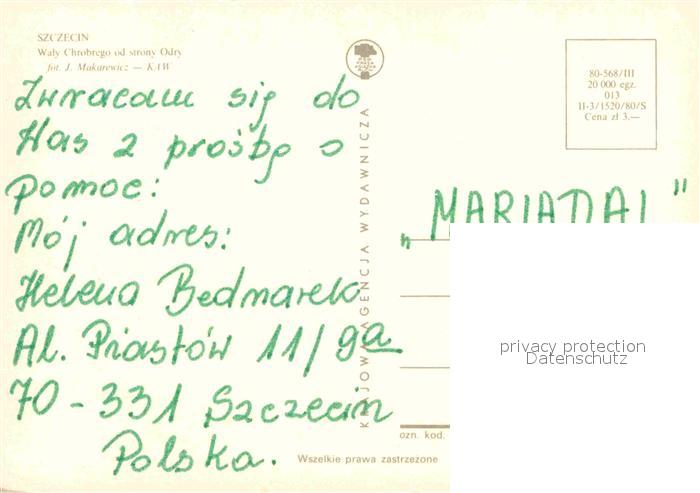 SZCZECIN
Wały Chrobrego od strony Odry
fot. J. Makarewicz — KAW
Zwracam się do
Was z prośbę o
pomoc:
Mój adres:
Helena Bednarek
Al. Piastów 11/9a
70-331 Szczecin
Polska.
KRAJOWA AGENCJA WYDAWNICZA
80-568/III
20 000 egz.
013
II-3/1520/80/S
Cena zł 3.—
„MARIADAL"
privacy protection
Datenschutz
ozn. kod.
Wszelkie prawa zastrzeżone